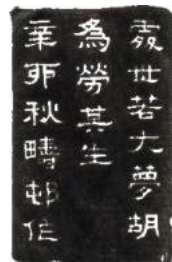 處世若大夢胡
為勞其生
辛卯秋疇邨作